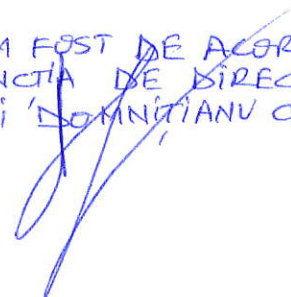 M FOST DE ACOR
NCTIA DE DIREC
I DOMNIȚIANU C